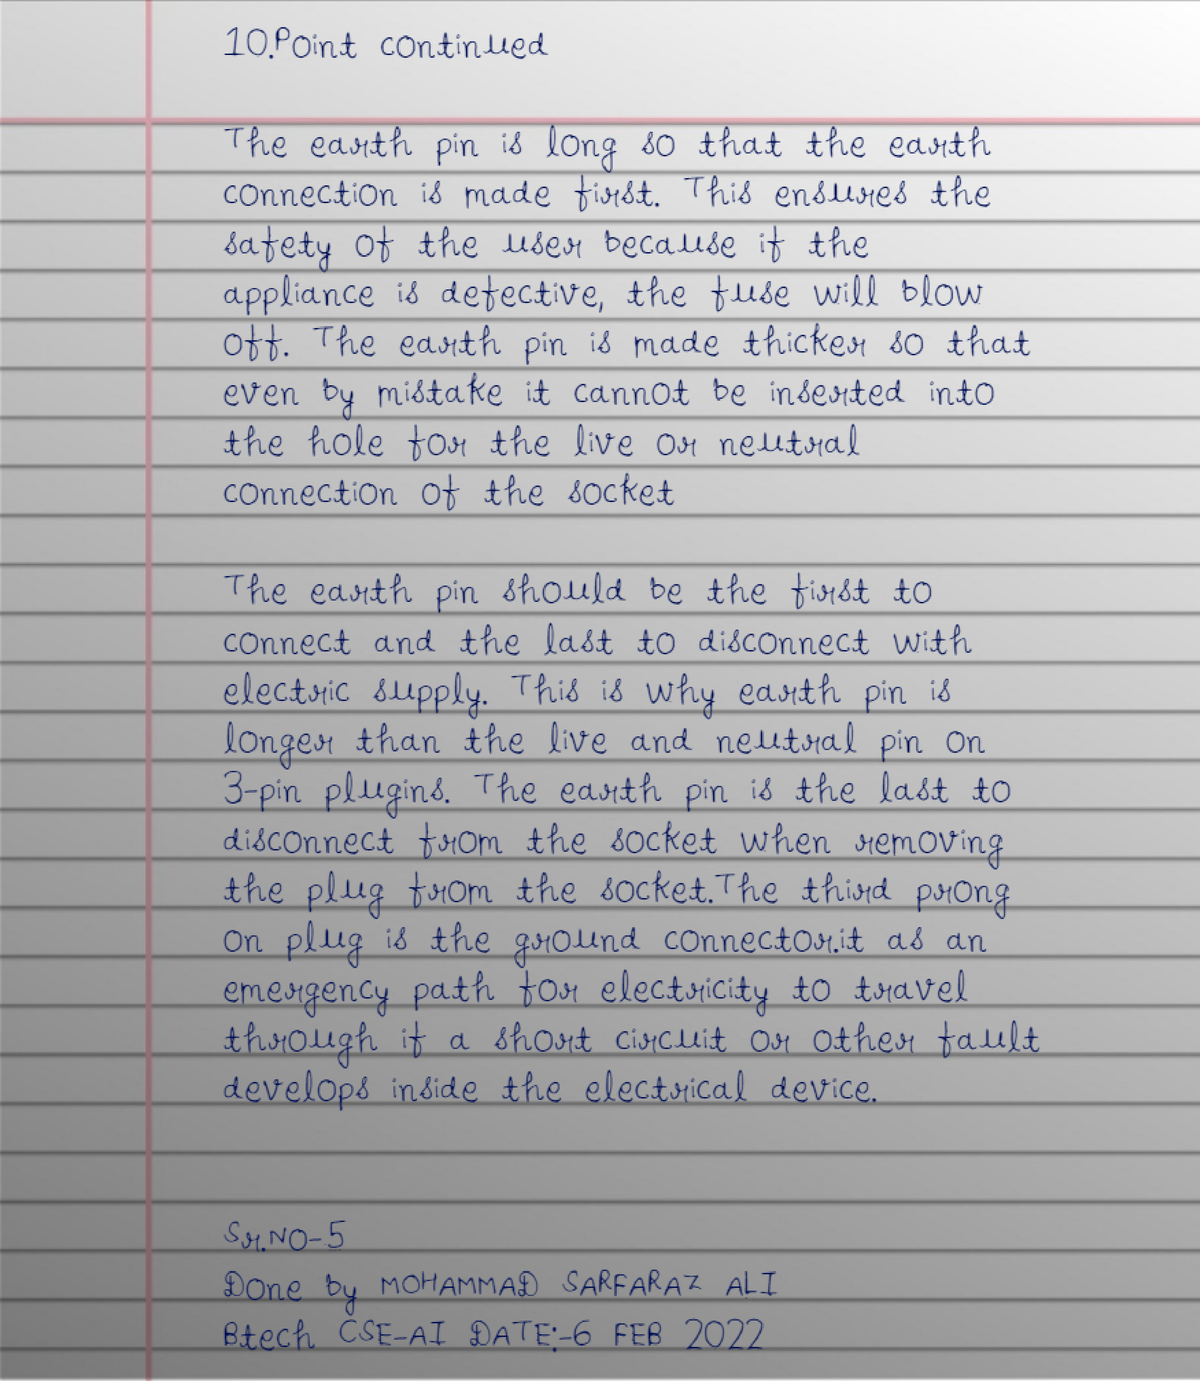 10.Point continued
The earth pin is long so that the earth
connection is made first. This ensures the
safety of the user because if the
appliance is defective, the fuse will blow
off. The earth pin is made thicker so that
even by mistake it cannot be inserted into
the hole for the live or neutral
connection of the socket
The earth pin should be the first to
connect and the last to disconnect with
electric supply. This is why earth pin is
longer than the live and neutral pin on
3-pin plugins. The earth pin is the last to
disconnect from the socket when removing
the plug from the socket.The third prong
on plug is the ground connector.it as an
emergency path for electricity to travel
through if a short circuit or other fault
develops inside the electrical device.
Sr.NO-5
Done by MOHAMMAD SARFARAZ ALI
Btech CSE-AI DATE:-6 FEB 2022